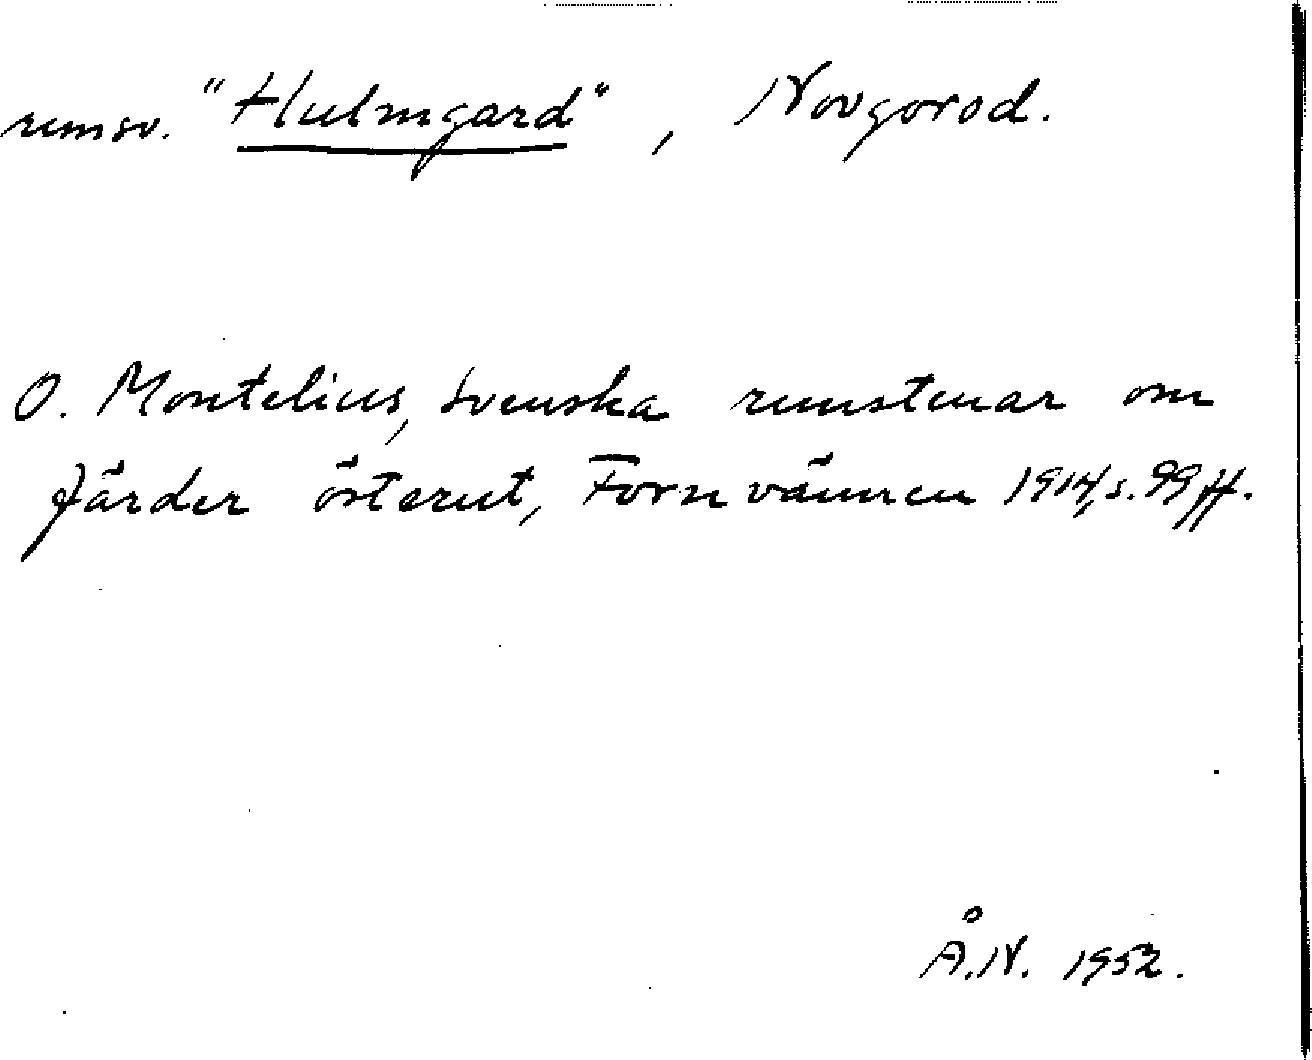 runsv. "Hulmgard", Novgorod.
O. Montelius, Svenska runstenar om
färder österut, Fornvännen 1914, s. 99 ff.
Å.N. 1952.